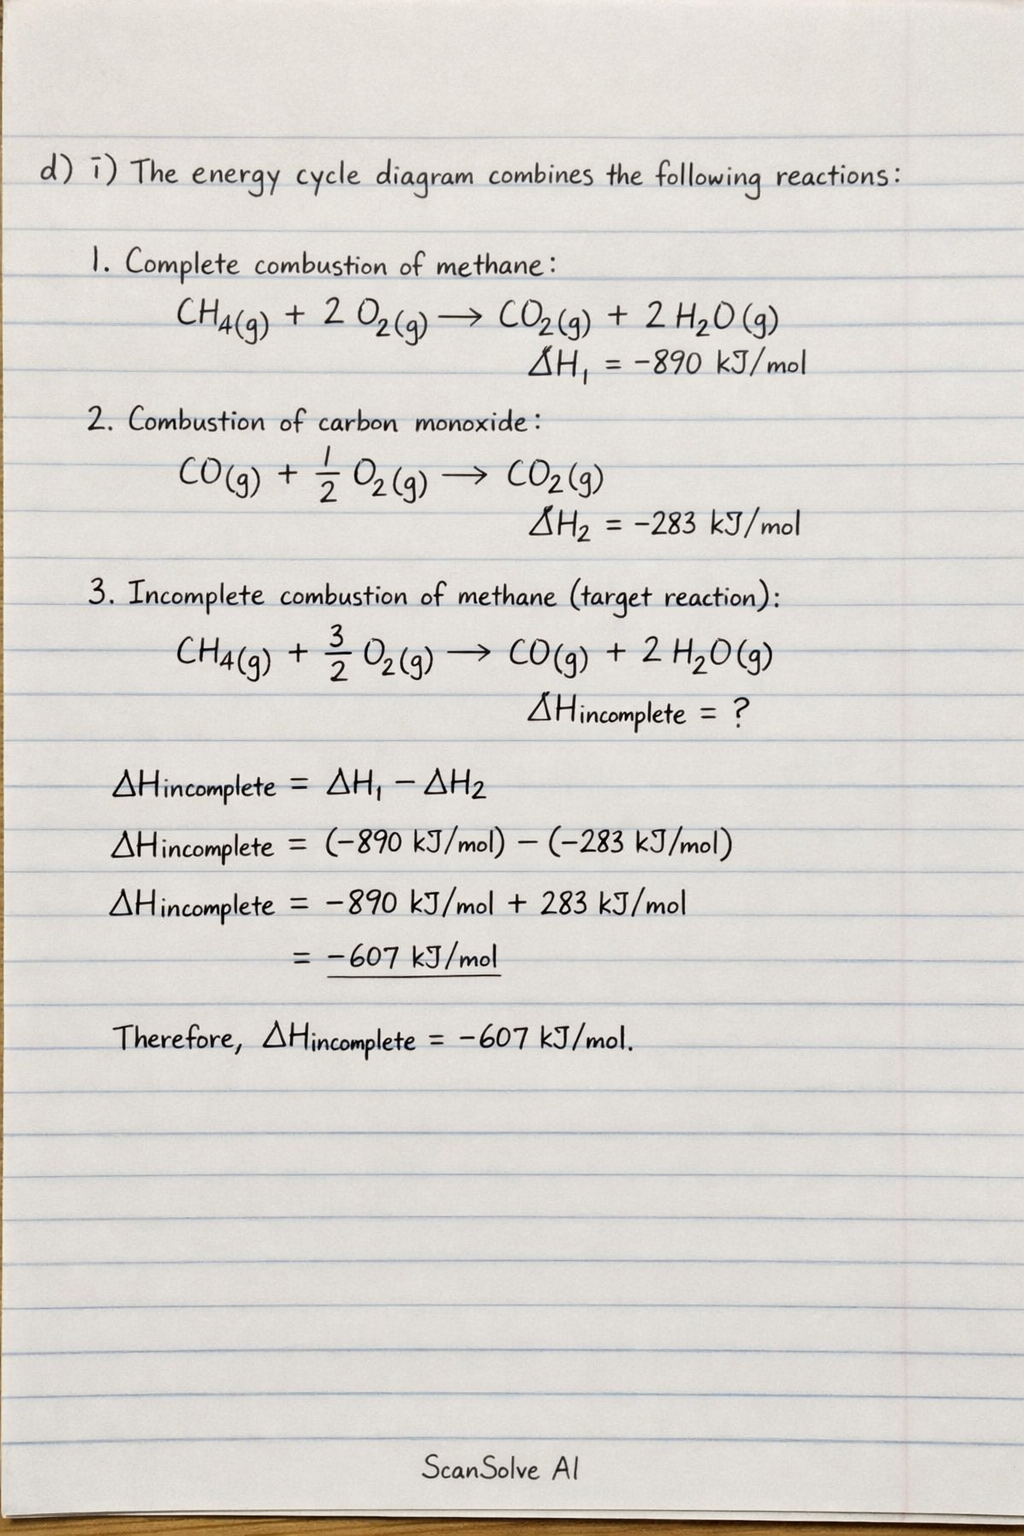 d) i) The energy cycle diagram combines the following reactions:
1. Complete combustion of methane:
CH₄(g) + 2 O₂(g) → CO₂(g) + 2 H₂O(g)
ΔH₁ = -890 kJ/mol
2. Combustion of carbon monoxide:
CO(g) + 1/2 O₂(g) → CO₂(g)
ΔH₂ = -283 kJ/mol
3. Incomplete combustion of methane (target reaction):
CH₄(g) + 3/2 O₂(g) → CO(g) + 2 H₂O(g)
ΔHincomplete = ?
ΔHincomplete = ΔH₁ - ΔH₂
ΔHincomplete = (-890 kJ/mol) - (-283 kJ/mol)
ΔHincomplete = -890 kJ/mol + 283 kJ/mol
= -607 kJ/mol
Therefore, ΔHincomplete = -607 kJ/mol.
ScanSolve AI